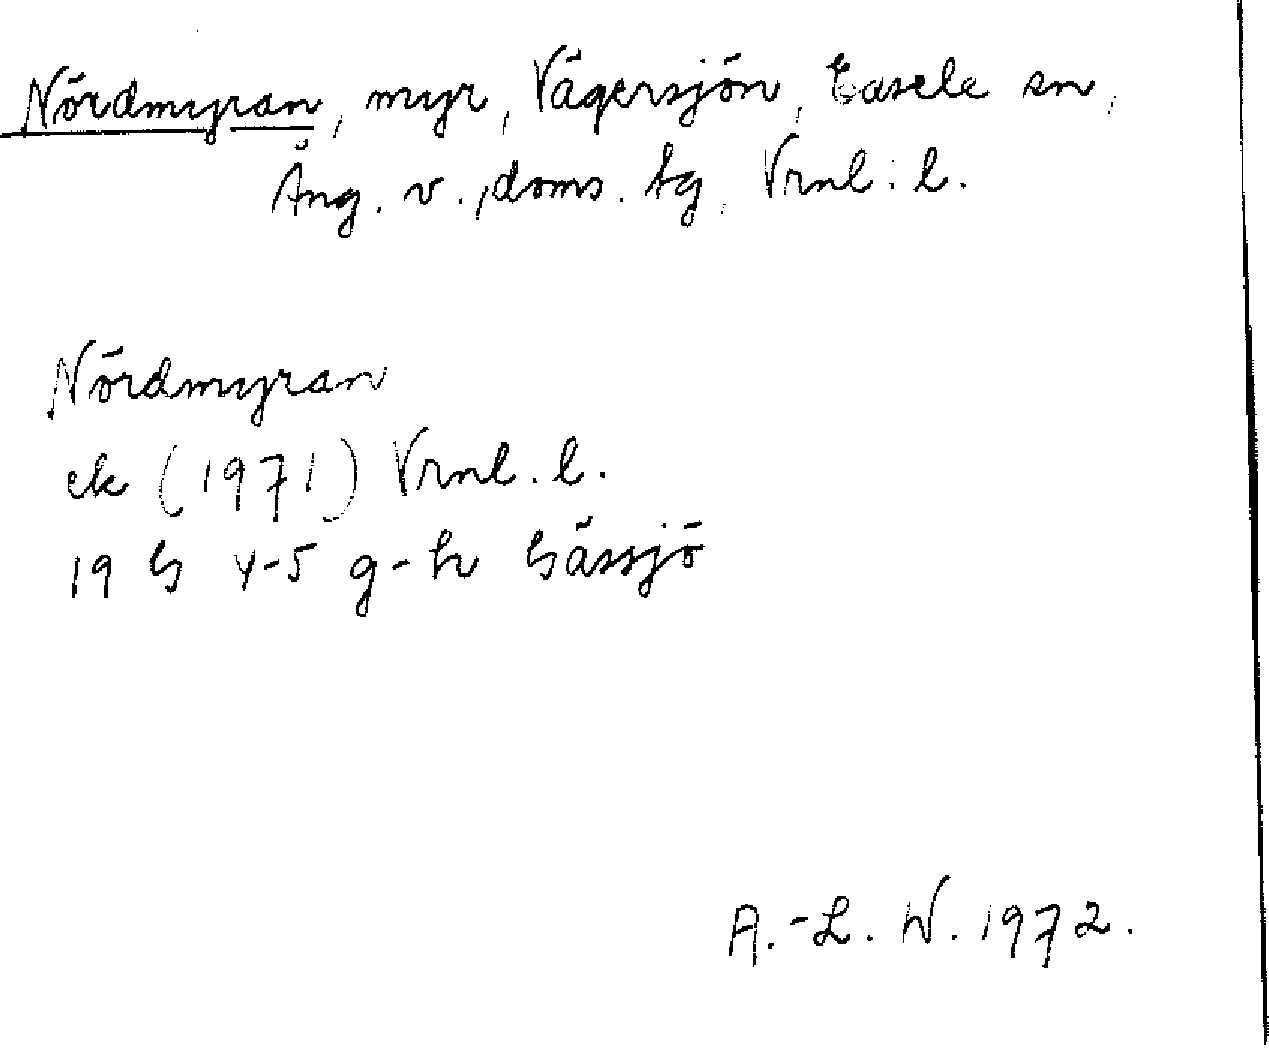 Nördmyran, myr, Vägersjön, Tåsele sn,
Ång. v., doms. tg, Vrnl. l.
Nördmyran
ek (1971) Vrnl. l.
19 G 4-5 g-h Gässjö
A.-L. W. 1972.